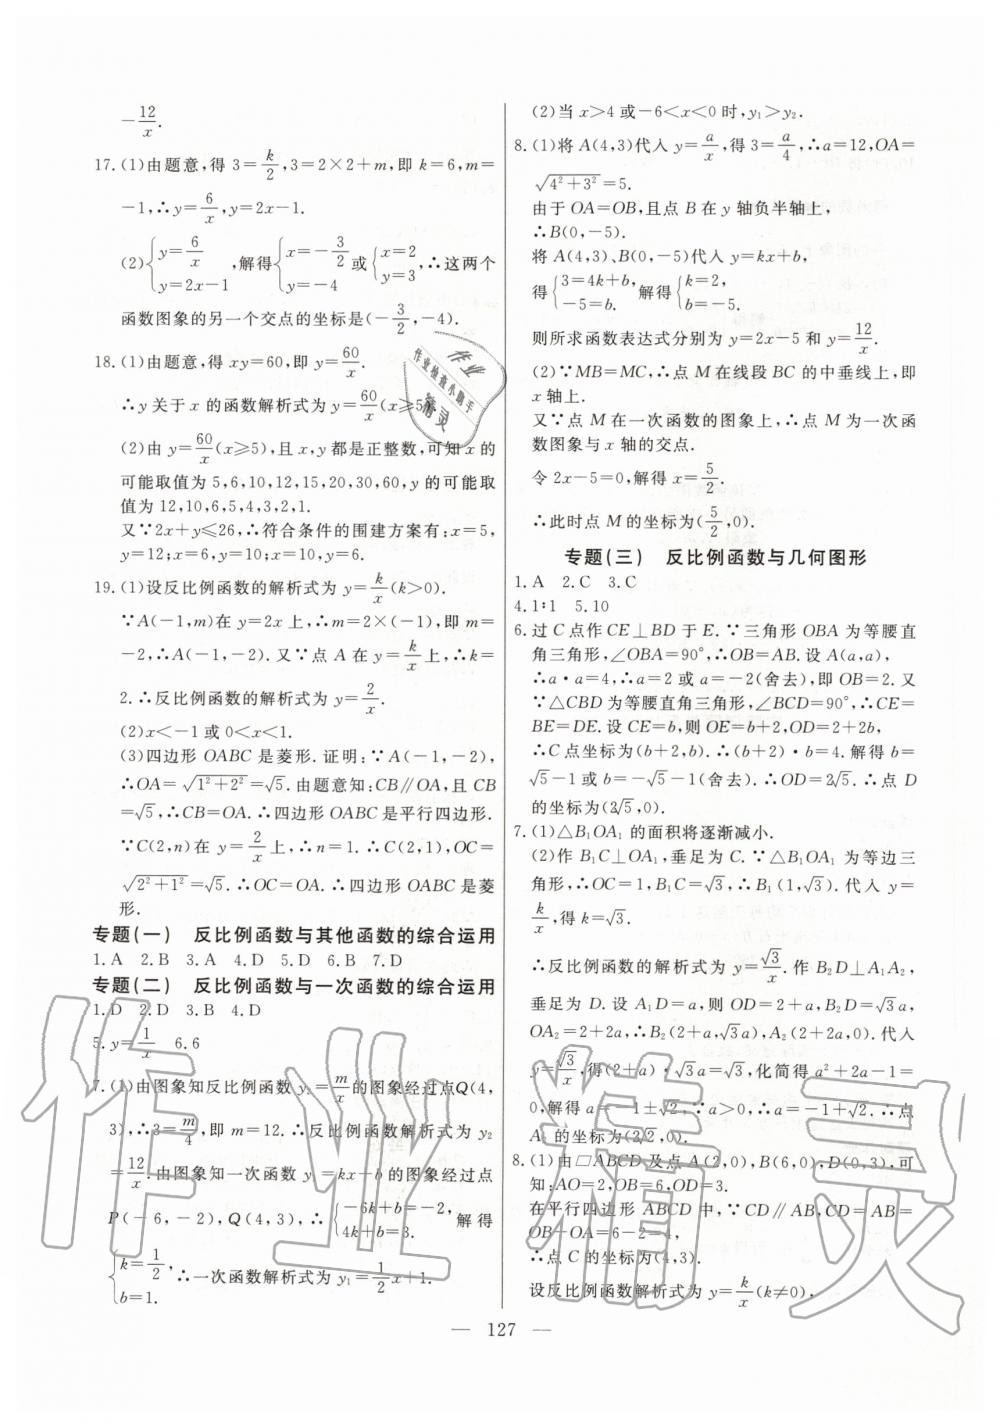 -12/x.
17.(1)由题意,得 3=k/2,3=2×2+m,即 k=6,m=
-1,∴y=6/x,y=2x-1.
(2){y=6/x, y=2x-1 ,解得{x=-3/2, y=-4 或{x=2, y=3 ,∴这两个
函数图象的另一个交点的坐标是(-3/2,-4).
18.(1)由题意,得 xy=60,即 y=60/x.
∴y 关于 x 的函数解析式为 y=60/x(x≥5
(2)由 y=60/x(x≥5),且 x,y 都是正整数,可知 x 的
可能取值为 5,6,10,12,15,20,30,60,y 的可能取
值为 12,10,6,5,4,3,2,1.
又∵2x+y≤26,∴符合条件的围建方案有:x=5,
y=12;x=6,y=10;x=10,y=6.
19.(1)设反比例函数的解析式为 y=k/x(k>0).
∵A(-1,m)在 y=2x 上,∴m=2×(-1),即 m=
-2,∴A(-1,-2). 又∵点 A 在 y=k/x 上,∴k=
2.∴反比例函数的解析式为 y=2/x.
(2)x<-1 或 0<x<1.
(3)四边形 OABC 是菱形. 证明:∵A(-1,-2),
∴OA=√(1²+2²)=√5. 由题意知:CB∥OA,且 CB
=√5,∴CB=OA.∴四边形 OABC 是平行四边形.
∵C(2,n)在 y=2/x 上,∴n=1.∴C(2,1),OC=
√(2²+1²)=√5.∴OC=OA.∴四边形 OABC 是菱
形.
专题(一) 反比例函数与其他函数的综合运用
1.A 2.B 3.A 4.D 5.D 6.B 7.D
专题(二) 反比例函数与一次函数的综合运用
1.D 2.D 3.B 4.D
5.y=1/x 6.6
7.(1)由图象知反比例函数 y₂=m/x的图象经过点Q(4,
3),∴3=m/4,即 m=12.∴反比例函数解析式为 y₂
=12/x. 由图象知一次函数 y₁=kx+b 的图象经过点
P(-6,-2),Q(4,3),∴{-6k+b=-2, 4k+b=3. 解得
{k=1/2, b=1. ∴一次函数解析式为 y₁=1/2x+1.
(2)当 x>4 或-6<x<0 时,y₁>y₂.
8.(1)将 A(4,3)代入 y=a/x,得 3=a/4,∴a=12,OA=
√(4²+3²)=5.
由于 OA=OB,且点 B 在 y 轴负半轴上,
∴B(0,-5).
将 A(4,3)、B(0,-5)代入 y=kx+b,
得{3=4k+b, -5=b. 解得{k=2, b=-5.
则所求函数表达式分别为 y=2x-5 和 y=12/x.
(2)∵MB=MC,∴点 M 在线段 BC 的中垂线上,即
x 轴上.
又∵点 M 在一次函数的图象上,∴点 M 为一次函
数图象与 x 轴的交点.
令 2x-5=0,解得 x=5/2.
∴此时点 M 的坐标为(5/2,0).
专题(三) 反比例函数与几何图形
1.A 2.C 3.C
4.1∶1 5.10
6.过 C 点作 CE⊥BD 于 E.∵三角形 OBA 为等腰直
角三角形,∠OBA=90°,∴OB=AB. 设 A(a,a),
∴a·a=4,∴a=2 或 a=-2(舍去),即 OB=2. 又
∵△CBD 为等腰直角三角形,∠BCD=90°,∴CE=
BE=DE. 设 CE=b,则 OE=b+2,OD=2+2b,
∴C 点坐标为(b+2,b).∴(b+2)·b=4. 解得 b=
√5-1 或 b=-√5-1(舍去).∴OD=2√5.∴点 D
的坐标为(2√5,0).
7.(1)△B₁OA₁ 的面积将逐渐减小.
(2)作 B₁C⊥OA₁,垂足为 C.∵△B₁OA₁ 为等边三
角形,∴OC=1,B₁C=√3,∴B₁(1,√3). 代入 y=
k/x,得 k=√3.
∴反比例函数的解析式为 y=√3/x. 作 B₂D⊥A₁A₂,
垂足为 D. 设 A₁D=a,则 OD=2+a,B₂D=√3a,
OA₂=2+2a,∴B₂(2+a,√3a),A₂(2+2a,0). 代入
y=√3/x,得(2+a)·√3a=√3,化简得 a²+2a-1=
0,解得 a=-1±√2.∵a>0,∴a=-1+√2.∴点
A₂ 的坐标为(2√2,0).
8.(1)由▱ABCD 及点 A(2,0),B(6,0),D(0,3),可
知:AO=2,OB=6,OD=3.
在平行四边形 ABCD 中,∵CD∥AB,CD=AB=
OB-OA=6-2=4,
∴点 C 的坐标为(4,3).
设反比例函数解析式为 y=k/x(k≠0),
— 127 —
作业
作业检查小助手
精灵
作业精灵